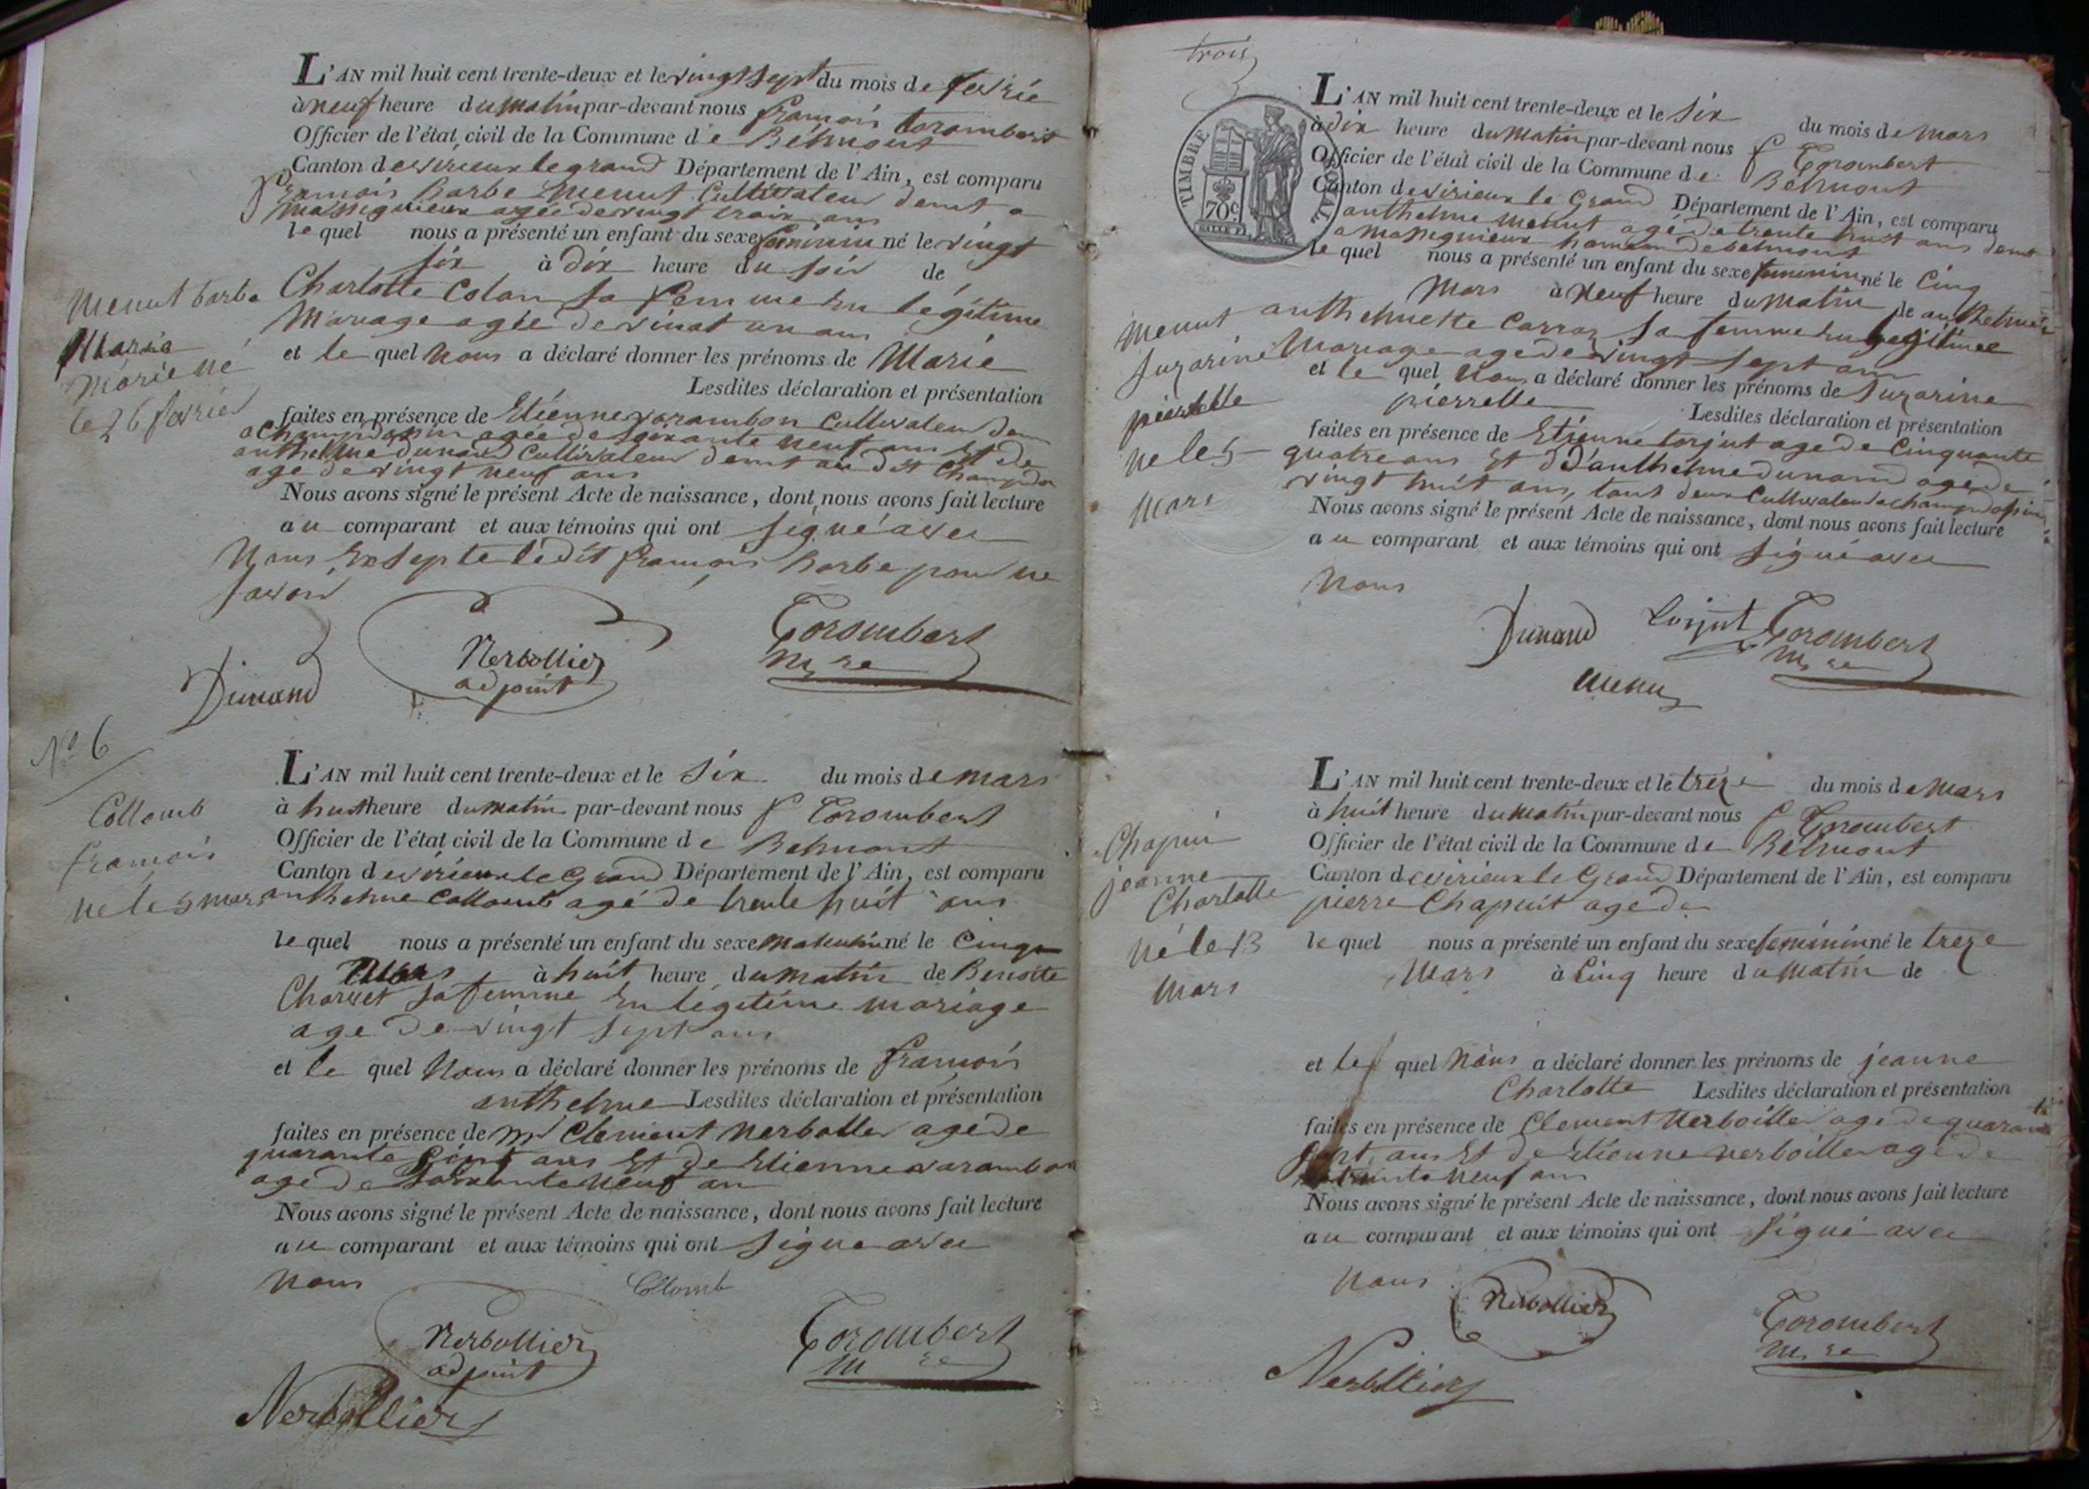 L'AN mil huit cent trente-deux et le vingt sept du mois de fevrié
à neuf heure du matin par-devant nous françois torombert
Officier de l'état civil de la Commune de Belmont
Canton de virieux le grand Département de l'Ain, est comparu
françois barbe menut Cultivateur demt a
massignieux agée de vingt trois ans
le quel nous a présenté un enfant du sexe feminin né le vingt
six à dix heure du soir de
Charlotte Colon sa femme en légitime
Mariage agée de vingt un ans
et le quel nous a déclaré donner les prénoms de Marie
Lesdites déclaration et présentation
faites en présence de Etienne varambon Cultivateur dem
a champdossin agée de soixante neuf ans et de
anthelme dunand Cultivateur demt au dit Champdo
age de vingt neuf ans
Nous avons signé le présent Acte de naissance, dont nous avons fait lecture
au comparant et aux témoins qui ont signé avec
Nous Exsepte ledit françois barbe pour ne
savoir
menut barbe
Marie
Marie né
le 26 fevrier
Dunand
Nerbollier
adjoint
Torombert
mre
No 6
Collomb
françois
né le 5 mars
L'AN mil huit cent trente-deux et le six du mois de mars
à huit heure du matin par-devant nous f Torombert
Officier de l'état civil de la Commune de Belmont
Canton de virieux le Grand Département de l'Ain, est comparu
anthelme Collomb agé de trente huit ans
le quel nous a présenté un enfant du sexe masculin né le Cinq
Mars à huit heure du matin de Benoite
Charvet sa femme En légitime mariage
age de vingt sept ans
et le quel Nous a déclaré donner les prénoms de françois
anthelme Lesdites déclaration et présentation
faites en présence de mr Clement Nerbollier agé de
quarante ans Et de Etienne varambon
age de soixante neuf an
Nous avons signé le présent Acte de naissance, dont nous avons fait lecture
au comparant et aux témoins qui ont signe avec
Nous
Collomb
Nerbollier
adjoint
Torombert
mre
Nerbollier
trois
TIMBRE ROYAL
70c
L'AN mil huit cent trente-deux et le six du mois de mars
à dix heure du matin par-devant nous f Torombert
Officier de l'état civil de la Commune de Belmont
Canton de virieux le Grand Département de l'Ain, est comparu
anthelme menut agé de trente huit ans demt
a massignieux hameau de belmont
le quel nous a présenté un enfant du sexe feminin né le Cinq
Mars à Neuf heure du matin de
anthelmette Carraz sa femme en legitime
Mariage age de vingt sept ans
et le quel nous a déclaré donner les prénoms de Suzarine
pierrette Lesdites déclaration et présentation
faites en présence de Etienne Lorjut age de Cinquante
quatre ans Et d'anthelme dunand agé de
vingt huit ans, tous deux Cultivateur a champdossin
Nous avons signé le présent Acte de naissance, dont nous avons fait lecture
au comparant et aux témoins qui ont signé avec
Nous
menut
Suzarine
pierrette
né le 5
Mars
Dunand
Lorjut
Torombert
mre
menu
Chapuit
jeanne
Charlotte
Né le 13
Mars
L'AN mil huit cent trente-deux et le treze du mois de Mars
à huit heure du matin par-devant nous f Torombert
Officier de l'état civil de la Commune de Belmont
Canton de virieux le Grand Département de l'Ain, est comparu
pierre Chapuit agé de
le quel nous a présenté un enfant du sexe feminin né le treze
Mars à Cinq heure du matin de
et le quel Nous a déclaré donner les prénoms de jeanne
Charlotte Lesdites déclaration et présentation
faites en présence de Clement Nerbollier age de quarante
ans Et de Etienne nerbollier agé de
trente neuf ans
Nous avons signé le présent Acte de naissance, dont nous avons fait lecture
au comparant et aux témoins qui ont signé avec
Nous
Nerbollier
Torombert
mre
Nerbollier